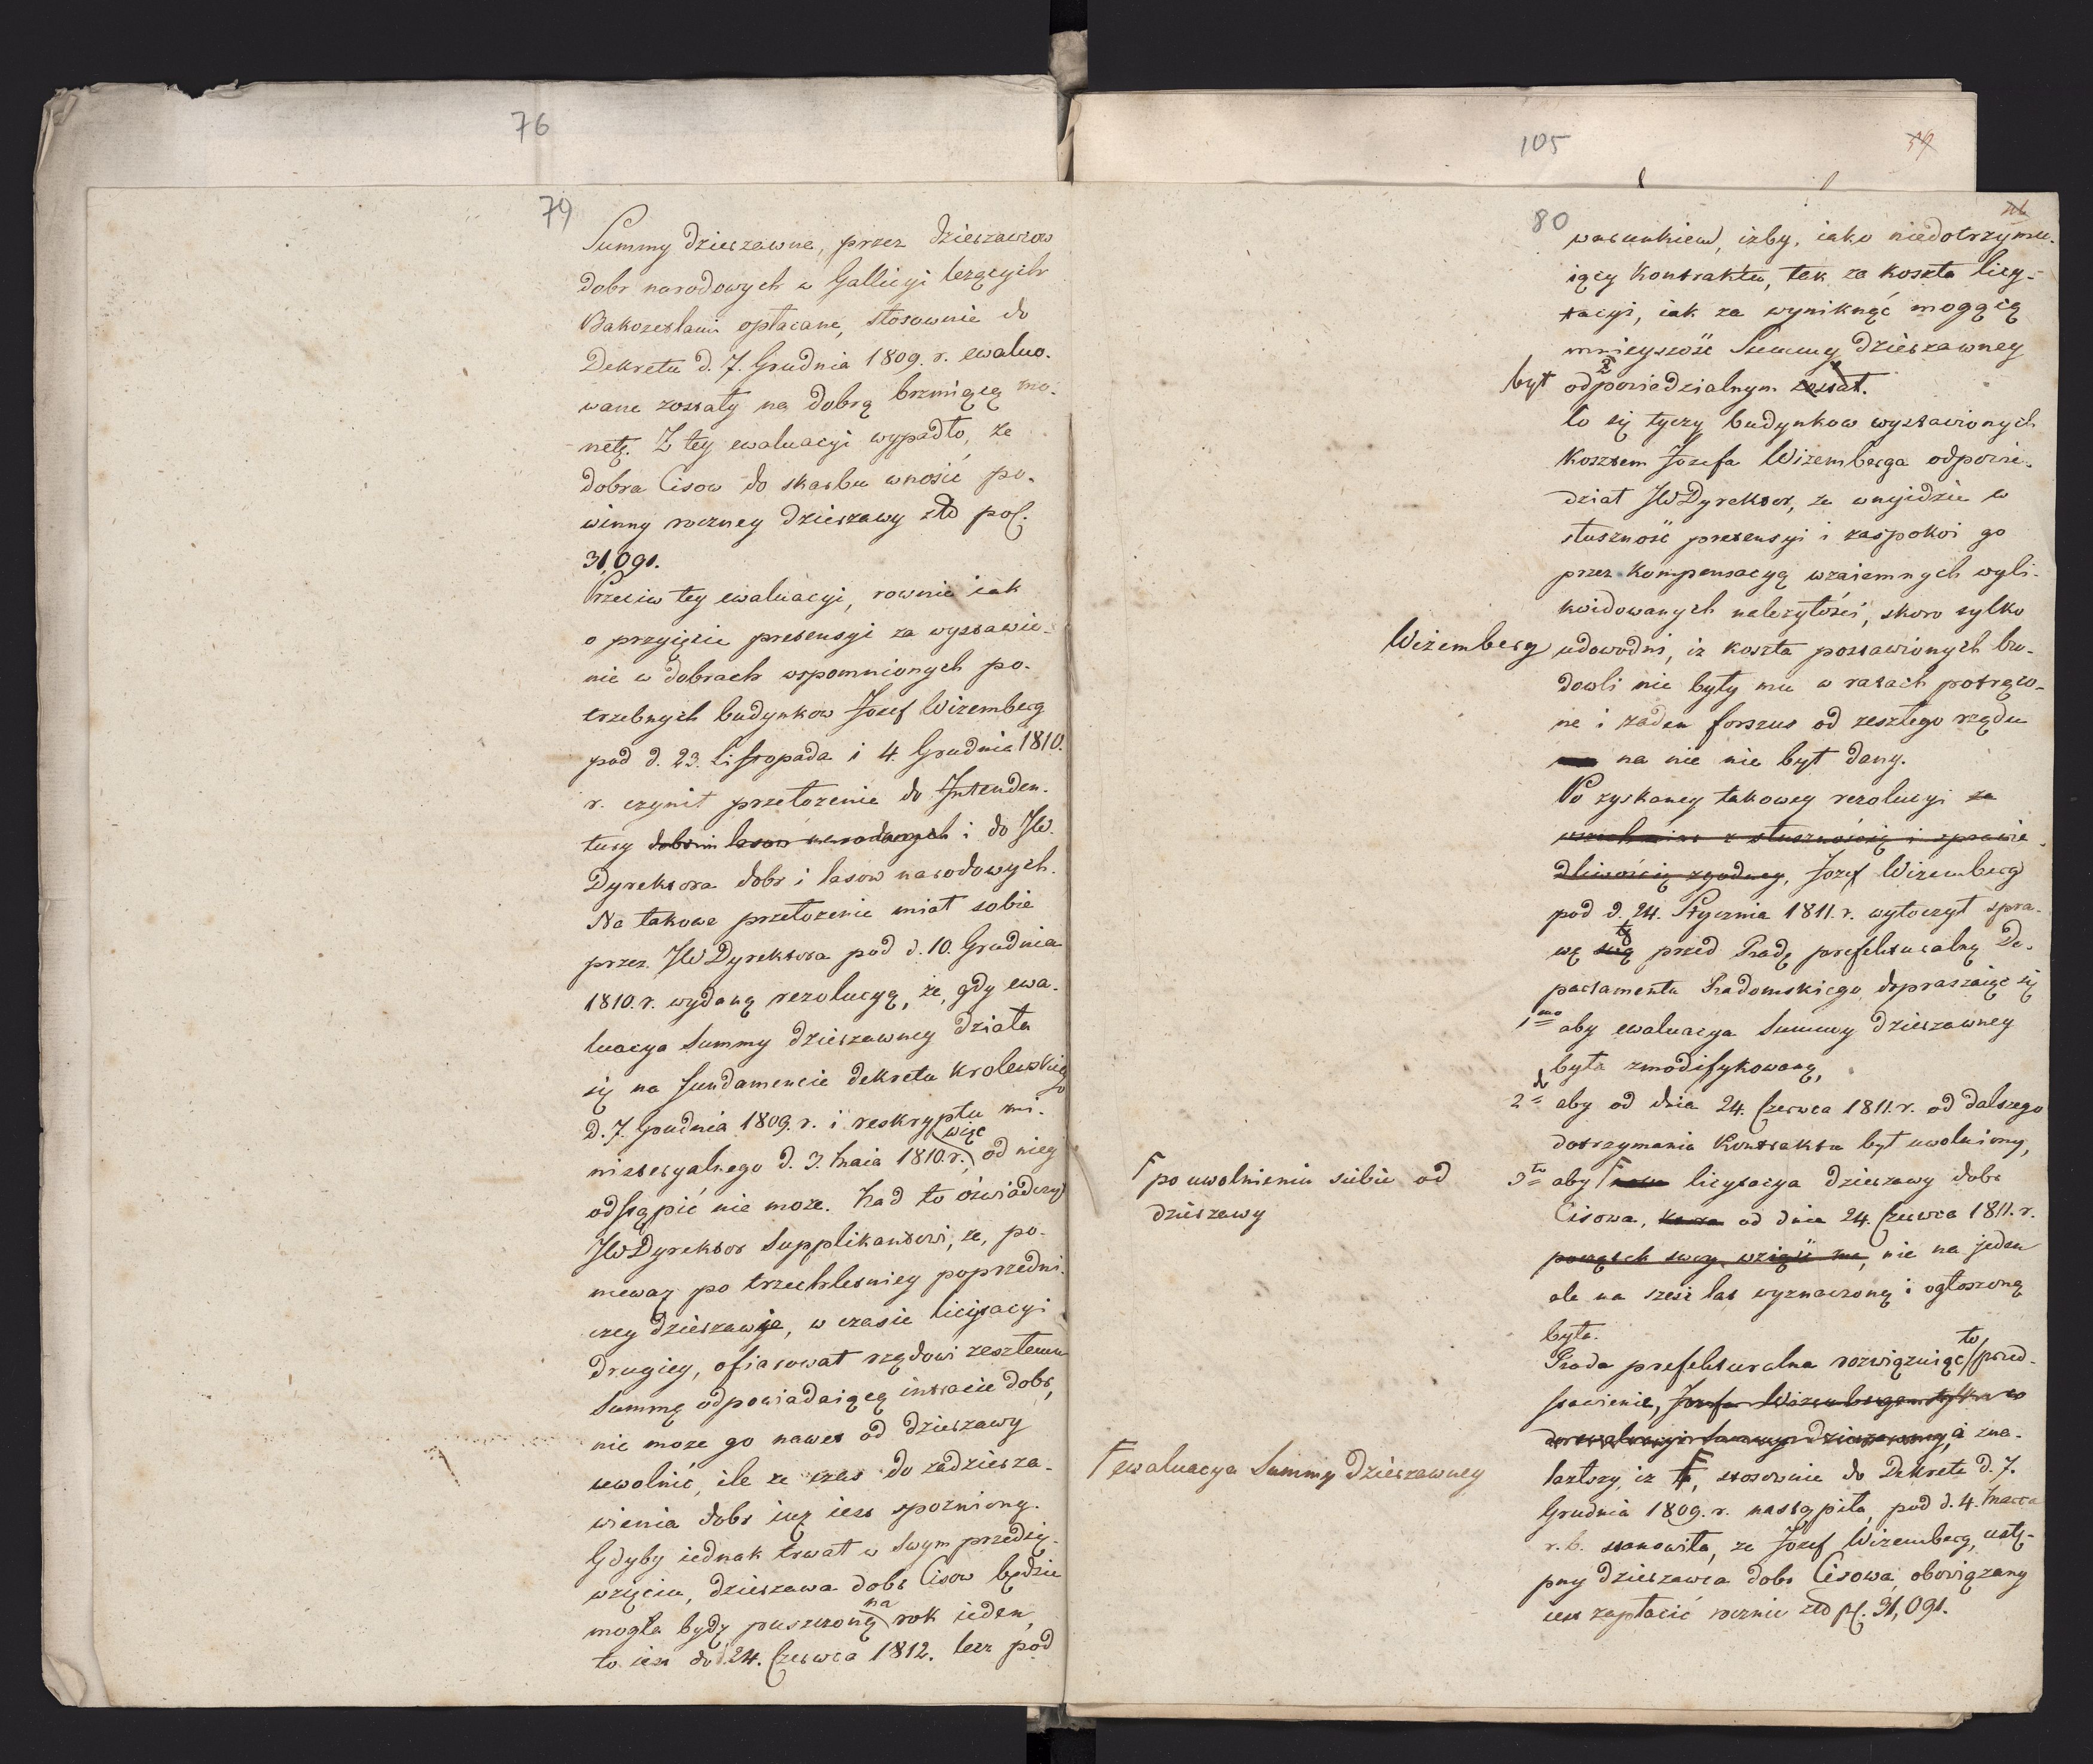 76
79
Summy dzierzawne, przez dzierzawcow
dobr narodowych w Gallicyi lezących
Bakocetlami opłacane, stosownie do
Dekretu d. 7. Grudnia 1809. r. ewaluo-
wane zostały na dobrą brzmiącą mo-
netę. Z tey ewaluacyi wypadło, że
dobra Cisow do skarbu wnosić po-
winny roczney dzierzawy złd pol:
31,091.
Przeciw tey ewaluacyi, rownie iak
o przyięcie pretensyi za wystawie-
nie w dobrach wspomnionych po-
trzebnych budynkow Jozef Wizemberg
pod d. 23. Listopada i 4. Grudnia 1810.
r. czynił przełozenie do Intenden-
tury dobr i lasow narodowych i do JW.
Dyrektora dobr i lasow narodowych.
Na takowe przełozenie miał sobie
przez JW Dyrektora pod d. 10. Grudnia
1810. r. wydaną rezolucyą, że, gdy ewa-
luacya Summy dzierzawney działa
się na fundamencie dekretu krolewskiego
D. 7. Grudnia 1809. r. i reskryptu mi-
nisteryalnego d. 3. Maia 1810. r. więc od niey
odstąpić nie moze. Nad to oświadczył
JW Dyrektor Supplikantowi, ze, po-
niewaz po trzechletniey poprzedni-
czey dzierzawie, w czasie licytacyi
drugiey, ofiarował rządowi zeszłemu
Summę odpowiadaiącą intracie dobr,
nie moze go nawet od dzierzawy
uwolnić, ile ze czas do zadzierza-
wienia dobr iuz iest spozniony.
Gdyby iednak trwał w swym przedsię-
wzięciu, dzierzawa dobr Cisow będzie
mogła bydz puszczoną na rok ieden,
to iest do d. 24. Czerwca 1812. lecz pod
105
80
warunkiem, izby, iako niedotrzymu-
iący Kontraktu, tak za koszta licy-
tacyi, iak za wyniknąć mogącą
mnieyszość Summy dzierzawney
był odpowiedzialnym został.
Co się tyczy budynkow wystawionych
Kosztem Jozefa Wizemberga odpowie-
dział JW Dyrektor, ze wnijdzie w
słuszność pretensyi i zaspokoi go
przez kompensacyą wzaiemnych wyli-
kwidowanych nalezytości, skoro tylko
Wizemberg udowodni, iz koszta postawionych bu-
dowli nie były mu w ratach potrąco-
ne i zaden forszus od zeszłego rządu
na nie nie był dany.
Po zyskaney takowey rezolucyi ze
wszech miar z słusznością i sprawie-
dliwością zgodney, Jozef Wizemberg
pod d. 24. Stycznia 1811. r. wytoczył spra-
wę tę przed Radę prefekturalną De-
partamentu Radomskiego dopraszaiąc się
1mo aby ewaluacya Summy dzierzawney
była zmodifykowaną,
2d aby od dnia 24. Czerwca 1811. r. od dalszego
dotrzymania Kontraktu był uwolniony,
3to aby Γ nowa licytacya dzierzawy dobr
Γ po uwolnieniu siebie od
dzierzawy
Cisowa, która od dnia 24. Czerwca 1811. r.
początek swoy wziąść ma, nie na jeden
ale na sześć lat wyznaczoną i ogłoszoną
była.
Rada prefekturalna rozwiązuiąc to przed-
stawienie, Jozefa Wizemberga tylko co
do ewaluacyi Summy dzierzawney, a zna-
lazłszy iz Γ, stosownie do Dekretu d. 7.
Γ ewaluacya Summy dzierzawney
Grudnia 1809. r. nastąpiła, pod d. 4. Marca
r. b. stanowiła, ze Jozef Wizemberg, ustę-
pny dzierzawca dobr Cisowa, obowiązany
iest zapłacić rocznie złd pl. 31,091.